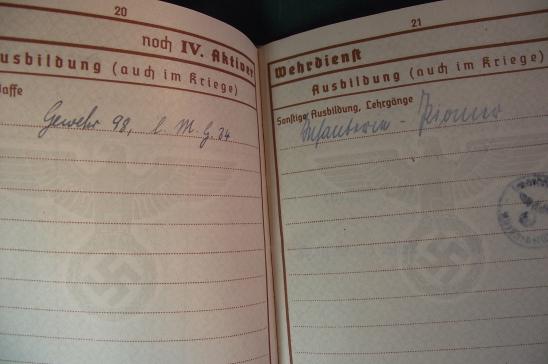 20
noch IV. Aktiver
usbildung (auch im Kriege)
affe
Gewehr 98, l. M. G. 34
21
Wehrdienst
Ausbildung (auch im Kriege)
Sonstige Ausbildung, Lehrgänge
Infanterie - Pionier